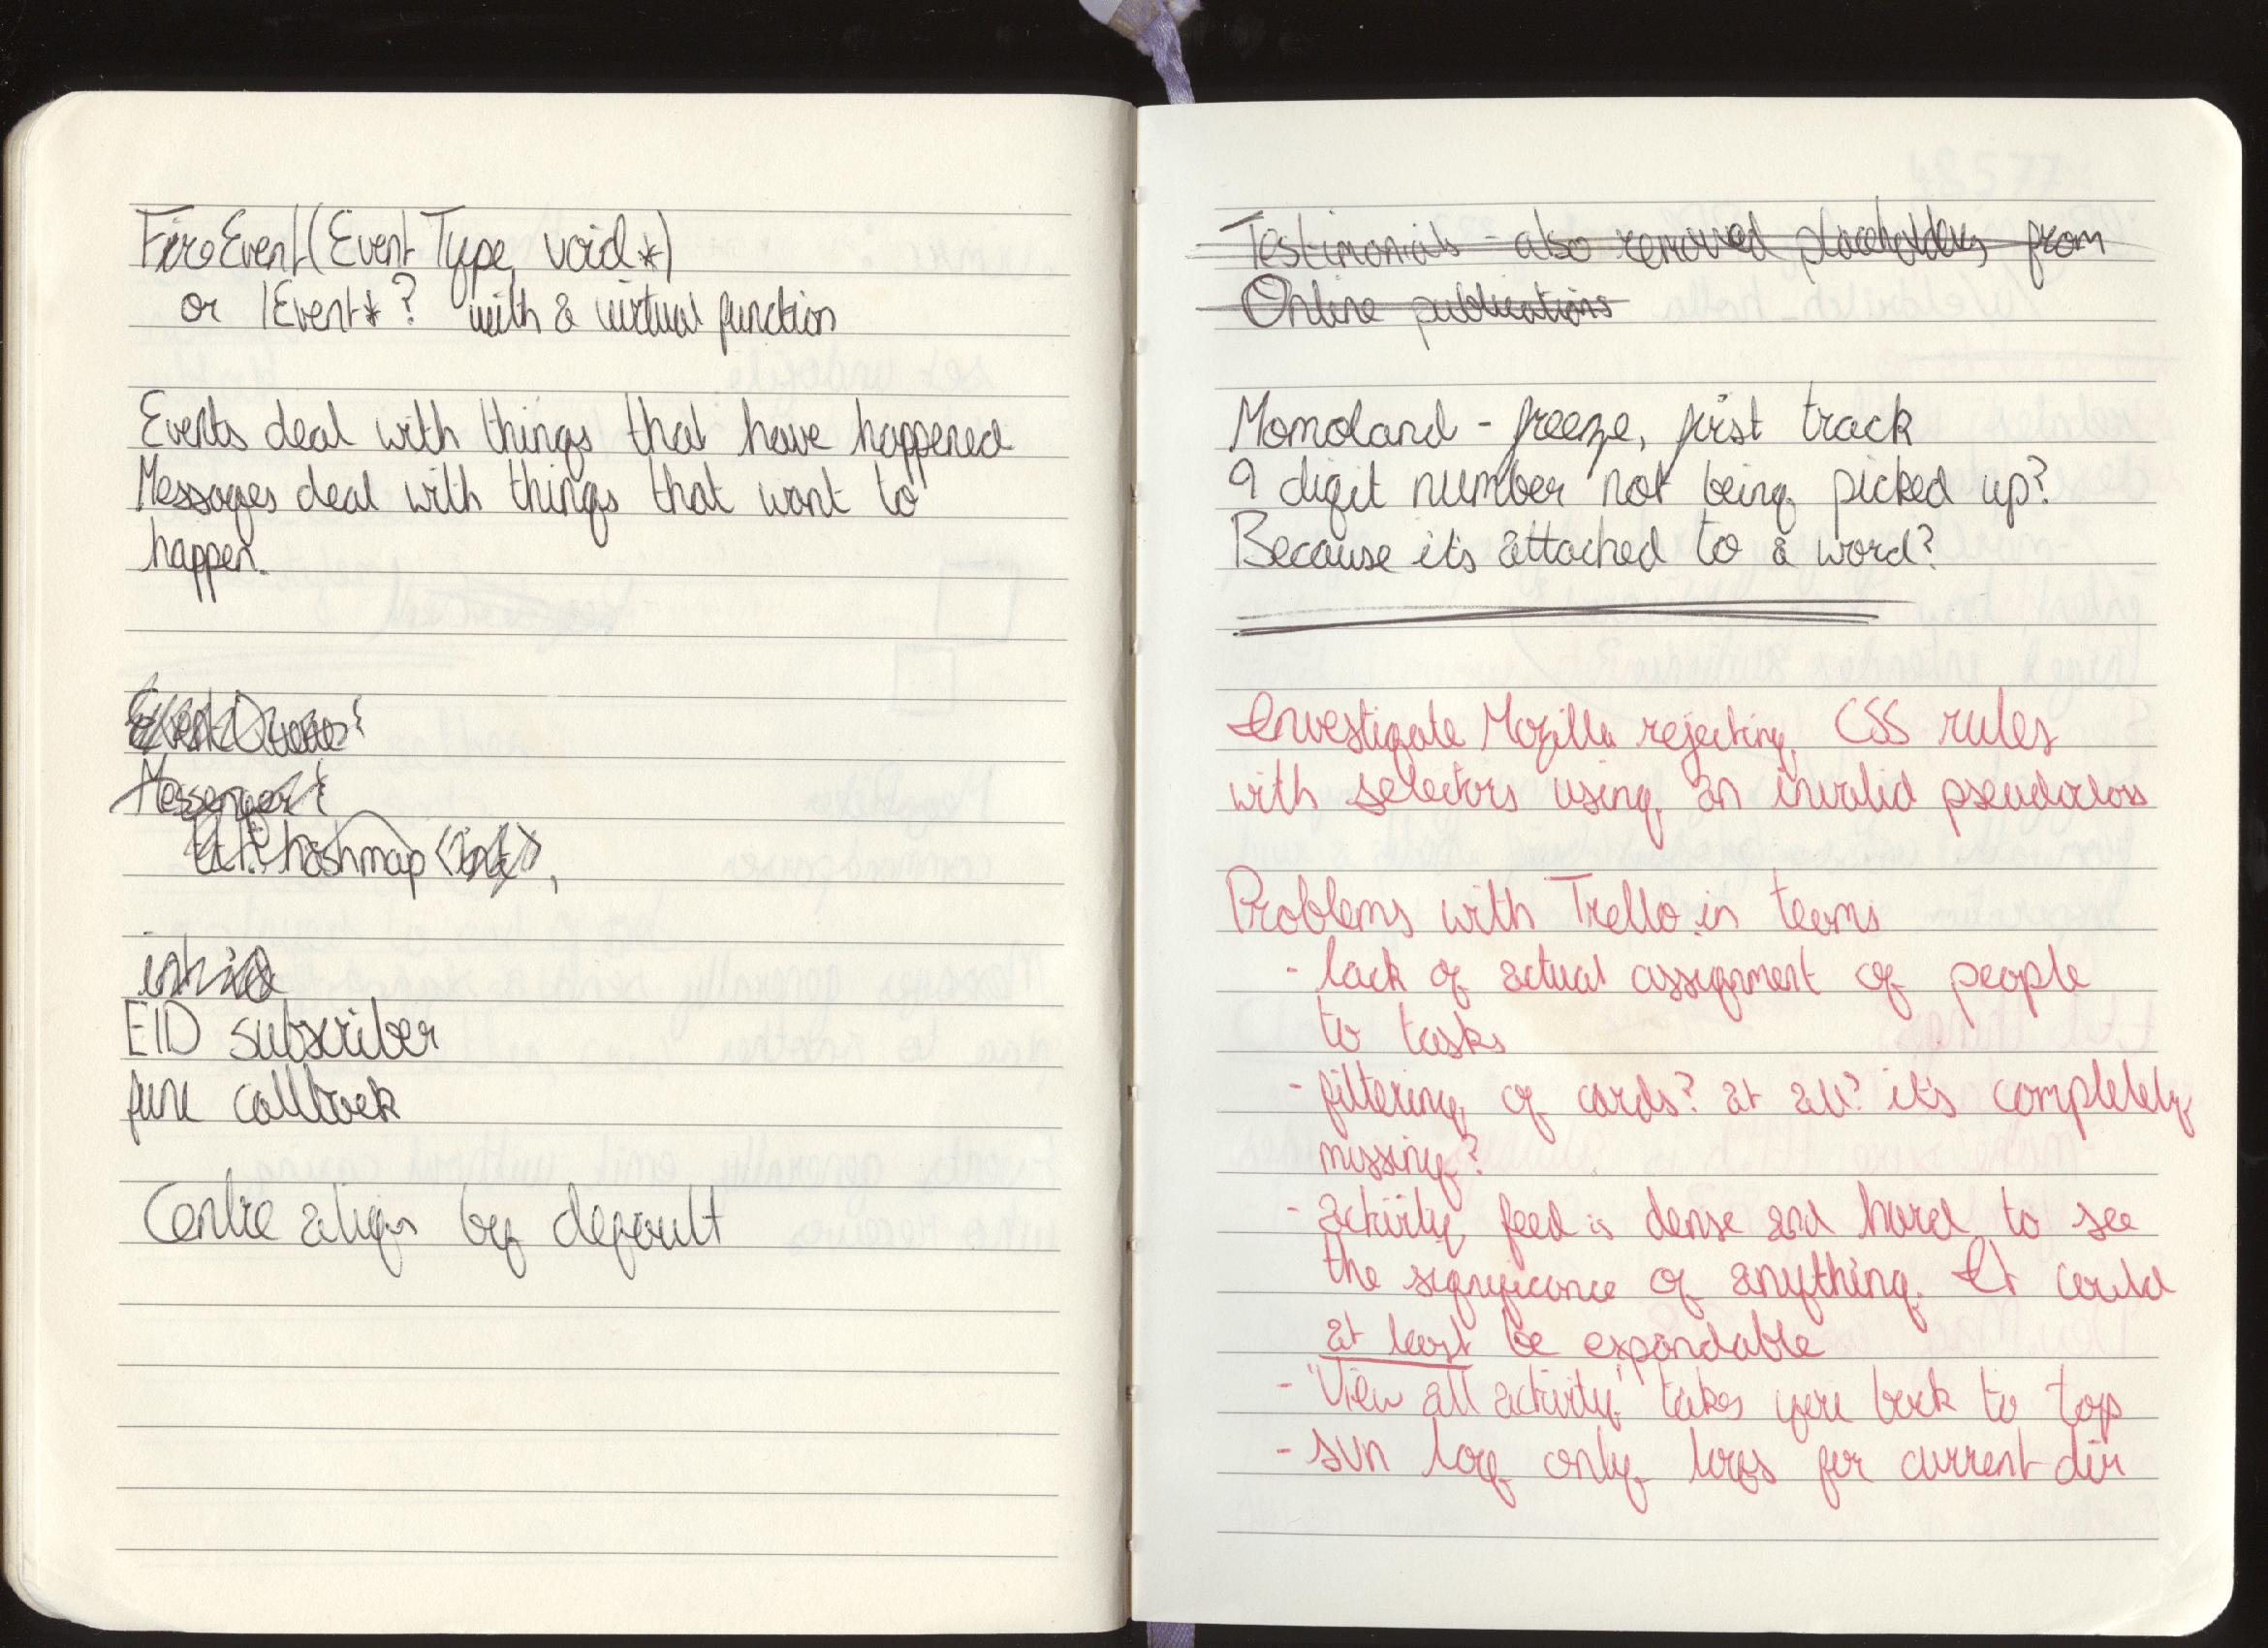 FireEvent(EventType, void*)
or IEvent*? with a virtual function
Events deal with things that have happened
Messages deal with things that want to
happen.
Messenger {
hashmap <int>,
int id
EID subscriber
func callback
Centre align by default
Testimonials - also removed placeholders from
Online publications
Momoland - freeze, first track
9 digit number not being picked up?
Because it's attached to a word?
Investigate Mozilla rejecting CSS rules
with selectors using an invalid pseudoclass
Problems with Trello in teams
- lack of actual assignment of people
to tasks
- filtering of cards? at all? it's completely
missing?
- activity feed is dense and hard to see
the significance of anything. It could
at least be expandable
- 'View all activity' takes you back to top
- svn log only logs for current dir